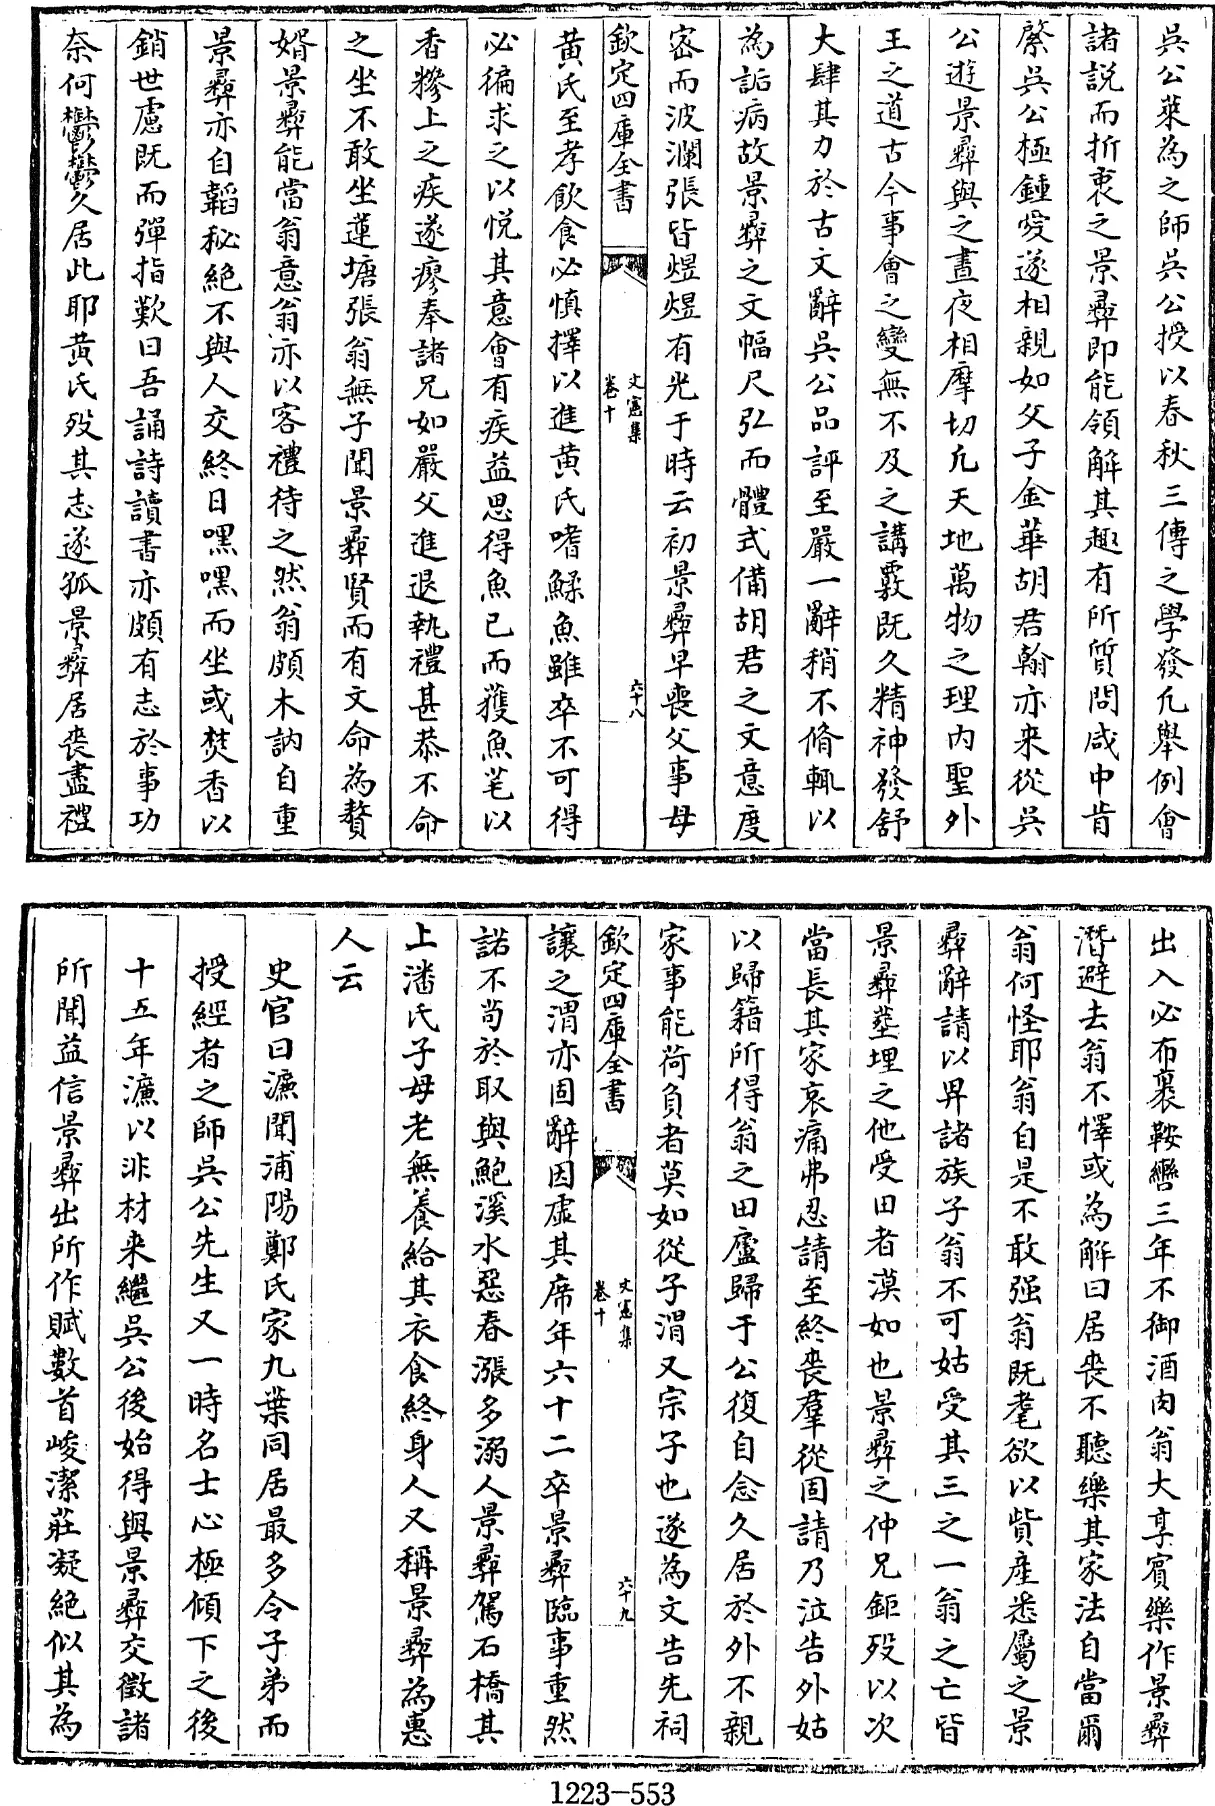 吳公萊為之師吳公授以春秋三傳之學發凡舉例會
諸説而折衷之景彞即能領解其趣有所質問咸中肯
綮吳公極鍾愛遂相親如父子金華胡君翰亦来從吳
公遊景彞與之晝夜相摩切凡天地萬物之理内聖外
王之道古今事會之變無不及之講覈既久精神發舒
大肆其力於古文辭吳公品評至嚴一辭稍不脩輒以
為詬病故景彞之文幅尺弘而體式備胡君之文意度
密而波瀾張皆煜煜有光于時云初景彞早喪父事母
欽定四庫全書
文憲集
卷十
六十八
黄氏至孝飲食必慎擇以進黄氏嗜鰇魚雖卒不可得
必徧求之以悦其意會有疾益思得魚已而獲魚笔以
香糝上之疾遂瘳奉諸兄如嚴父進退執禮甚恭不命
之坐不敢坐蓮塘張翁無子聞景彞賢而有文命為贅
婿景彞能當翁意翁亦以客禮待之然翁頗木訥自重
景彞亦自韜秘絶不與人交終日嘿嘿而坐或焚香以
銷世慮既而彈指歎曰吾誦詩讀書亦頗有志於事功
奈何鬱鬱久居此耶黄氏殁其志遂孤景彞居喪盡禮
出入必布裹鞍轡三年不御酒肉翁大享賓樂作景彞
潛避去翁不懌或為解曰居喪不聽樂其家法自當爾
翁何怪耶翁自是不敢强翁既耄欲以貲產悉屬之景
彞辭請以畀諸族子翁不可姑受其三之一翁之亡皆
景彞塟埋之他受田者漠如也景彞之仲兄鉅殁以次
當長其家哀痛弗忍請至終喪羣從固請乃泣告外姑
以歸籍所得翁之田廬歸于公復自念久居於外不親
家事能荷負者莫如從子渭又宗子也遂為文告先祠
欽定四庫全書
文憲集
卷十
六十九
讓之渭亦固辭因虚其席年六十二卒景彞臨事重然
諾不茍於取與鮑溪水惡春漲多溺人景彞駕石橋其
上潘氏子母老無養給其衣食終身人又稱景彞為惠
人云
史官曰濂聞浦陽鄭氏家九葉同居最多令子弟而
授經者之師吳公先生又一時名士心極傾下之後
十五年濂以非材来繼吳公後始得與景彞交徵諸
所聞益信景彞出所作賦數首峻潔莊凝絶似其為
1223-553